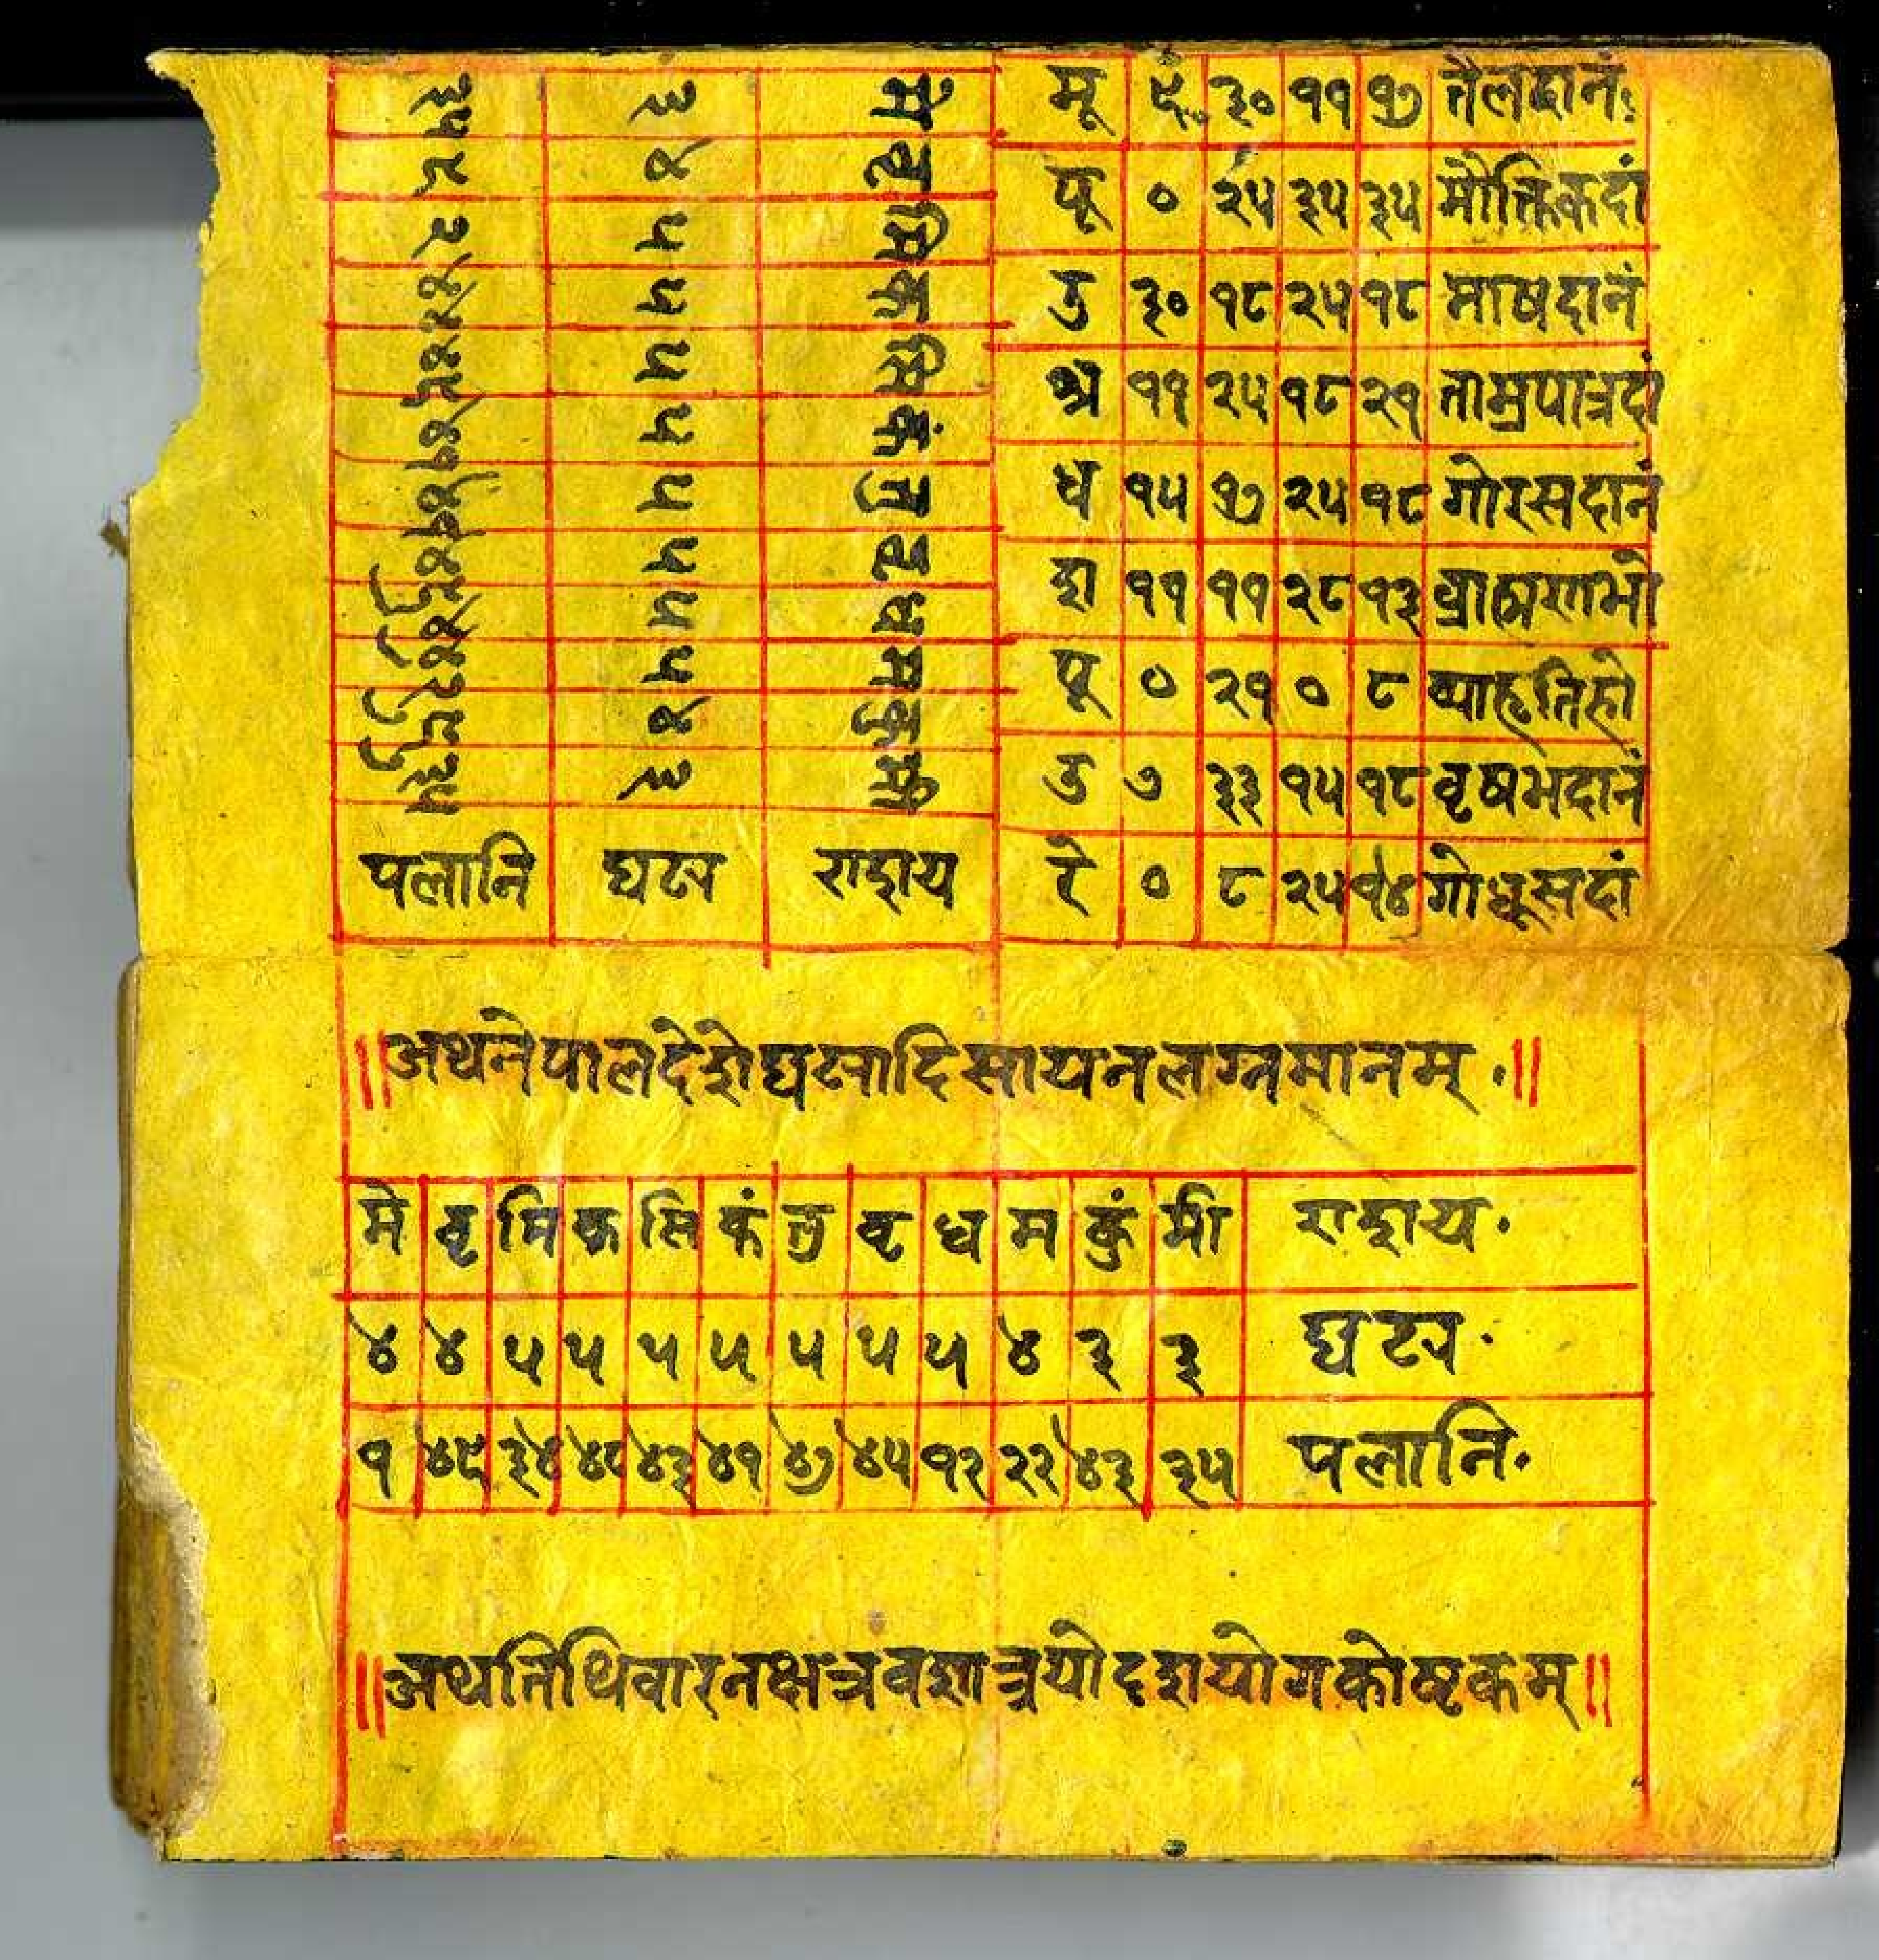 मू ९ ३० ११ १७ तैलदानं
पू ० २५ ३५ ३५ मौक्तिकदां
उ ३० १८ २५ १८ माषदानं
श्र ११ २५ १८ २१ ताम्रपात्रदां
ध १५ १७ २५ १८ गोरसदानं
श ११ ११ २८ १३ ब्राह्मणभो
पू ० २१ ० ८ व्याहृतिहो
उ ७ ३३ १५ १८ वृषभदानं
रे ० ८ २५ १४
मे ३
वृ ४
मि ५
क ५
सिं ५
कं ५
तु ५
वृ ५
ध ५
म ५
कुं ४
मी ३
पलानि घट्य राशय
॥अथनेपालदेशेघट्यादिसायनलग्नमानम्॥
मे वृ मि क सि कं तु वृ ध म कुं मी राशय
४ ४ ५ ५ ५ ५ ५ ५ ५ ४ ३ ३ घट्य
१ ४९ ३४ ४८ ४३ ४१ ४७ ४५ १२ २२ ४३ ३५ पलानि
॥अथतिथिवारनक्षत्रवशात्त्रयोदशयोगकोष्टकम्॥